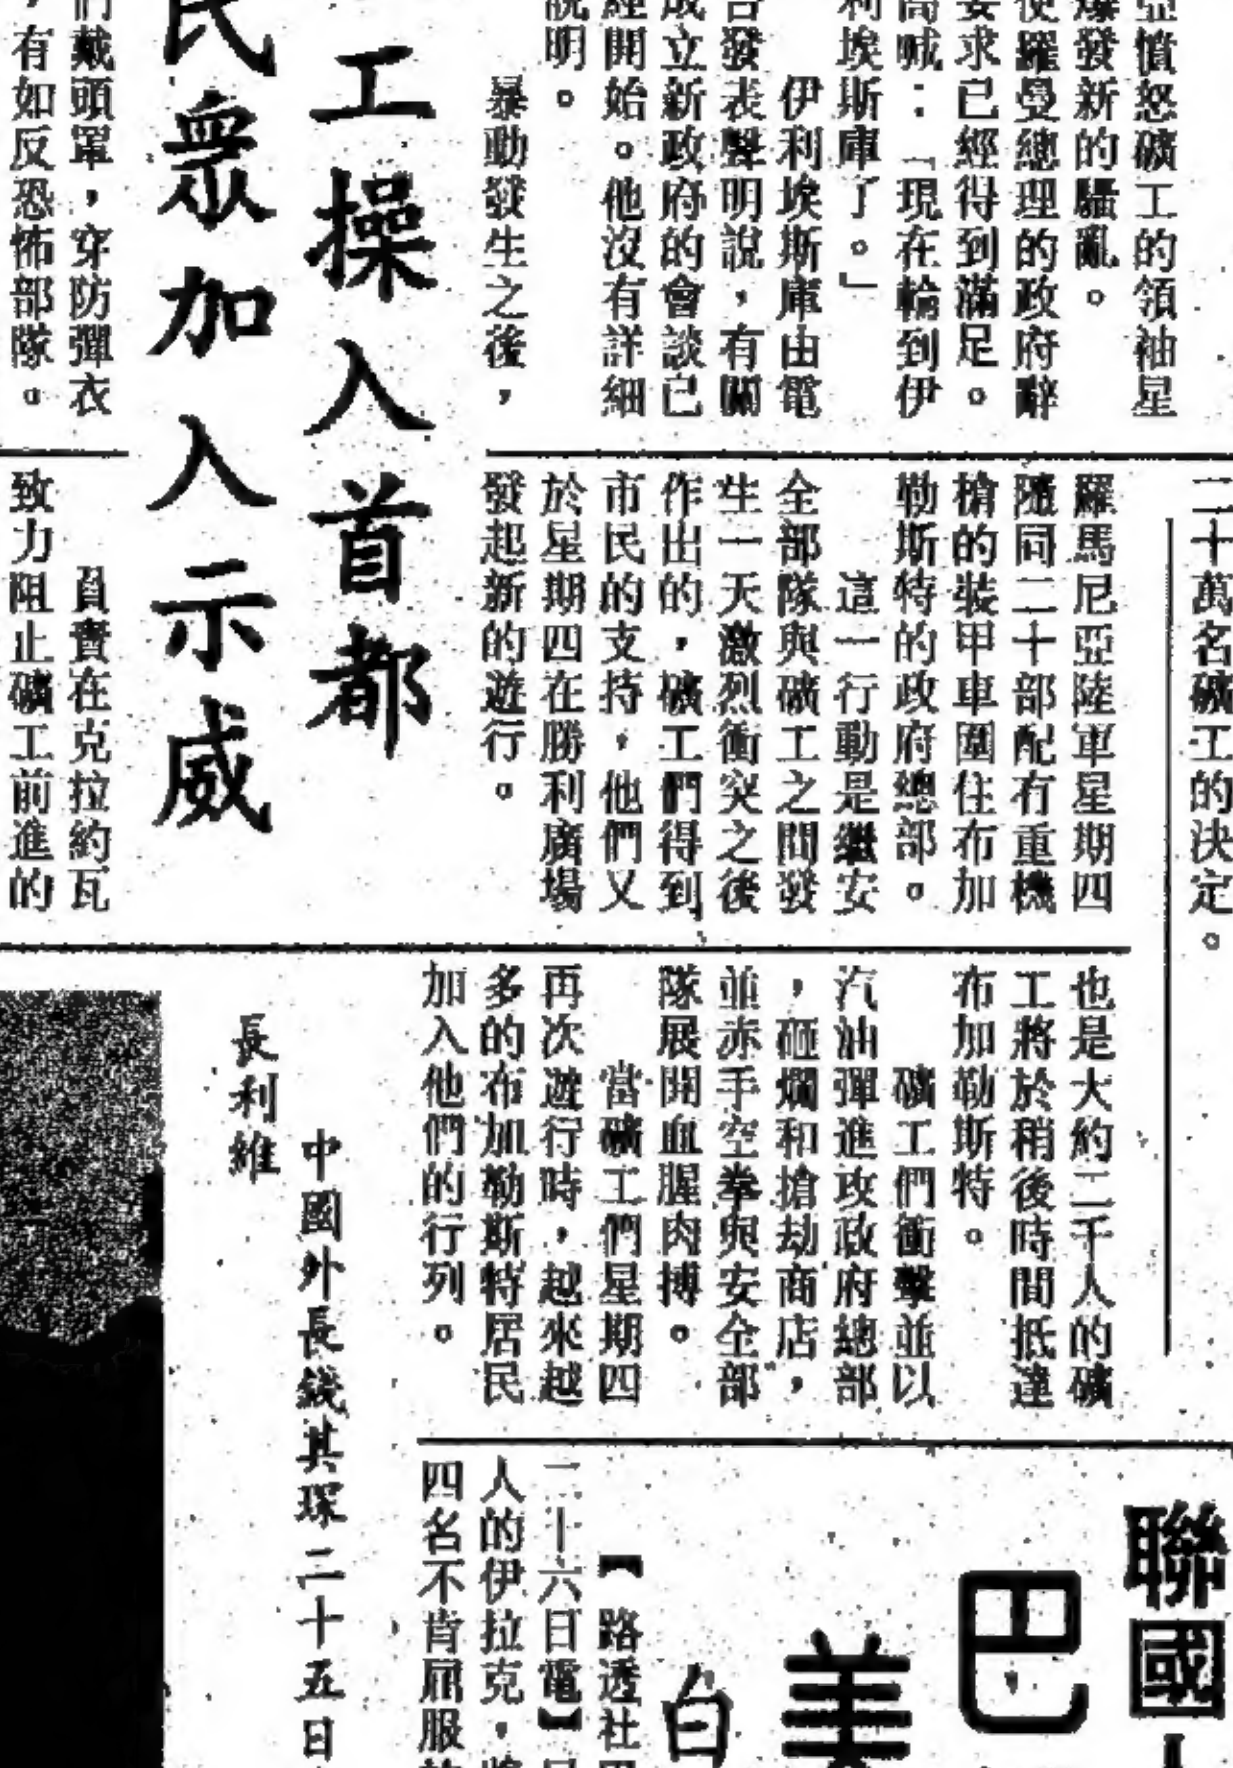 亞憤怒礦工的領袖星
爆發新的騷亂。
使羅曼總理的政府辭
要求已經得到滿足。
高喊：「現在輪到伊
利埃斯庫了。」
伊利埃斯庫由電
台發表聲明說，有關
成立新政府的會談已
經開始。他沒有詳細
說明。
暴動發生之後，
工操入首都
民眾加入示威
們戴頭罩，穿防彈衣
，有如反恐怖部隊。
二十萬名礦工的決定。
羅馬尼亞陸軍星期四
隨同二十部配有重機
槍的裝甲車圍住布加
勒斯特的政府總部。
這一行動是繼安
全部隊與礦工之間發
生一天激烈衝突之後
作出的，礦工們得到
市民的支持，他們又
於星期四在勝利廣場
發起新的遊行。
負責在克拉約瓦
致力阻止礦工前進的
也是大約二千人的礦
工將於稍後時間抵達
布加勒斯特。
礦工們衝擊並以
汽油彈進攻政府總部
，砸爛和搶劫商店，
並赤手空拳與安全部
隊展開血腥肉搏。
當礦工們星期四
再次遊行時，越來越
多的布加勒斯特居民
加入他們的行列。
中國外長錢其琛二十五日
長利維
聯國
巴
美
白
【路透社巴
二十六日電】
人的伊拉克，將
四名不肯屈服